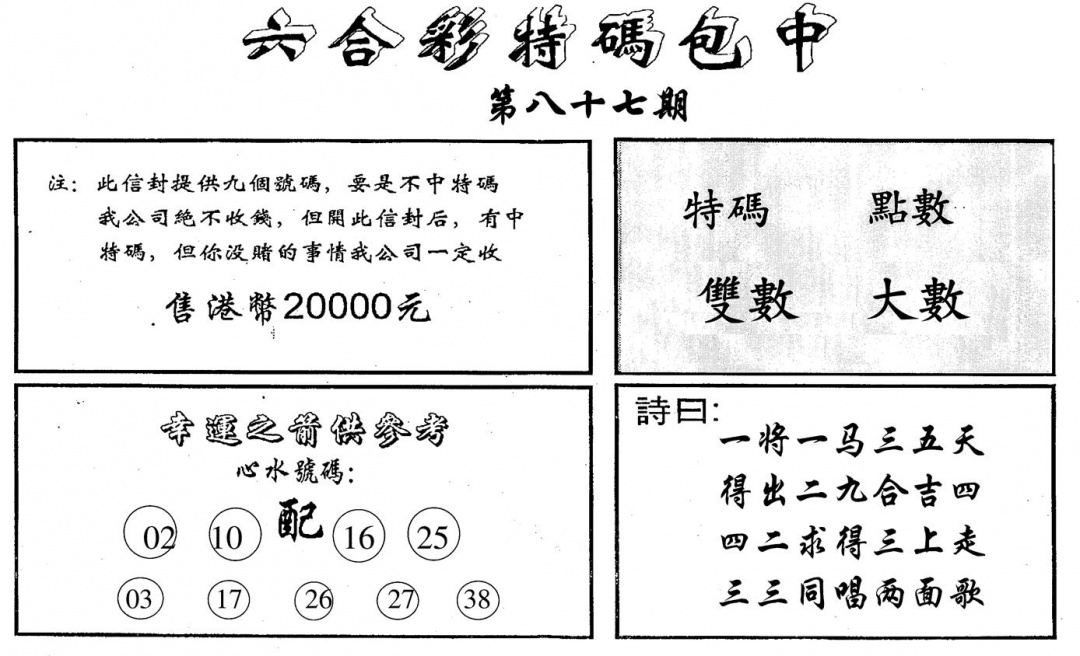 六合彩特碼包中
第八十七期
注：此信封提供九個號碼，要是不中特碼
我公司絕不收錢，但開此信封后，有中
特碼，但你没賭的事情我公司一定收
售港幣20000元
特碼 點數
雙數 大數
幸運之箭供參考
心水號碼：
02 10 配 16 25
03 17 26 27 38
詩曰：
一将一马三五天
得出二九合吉四
四二求得三上走
三三同唱两面歌